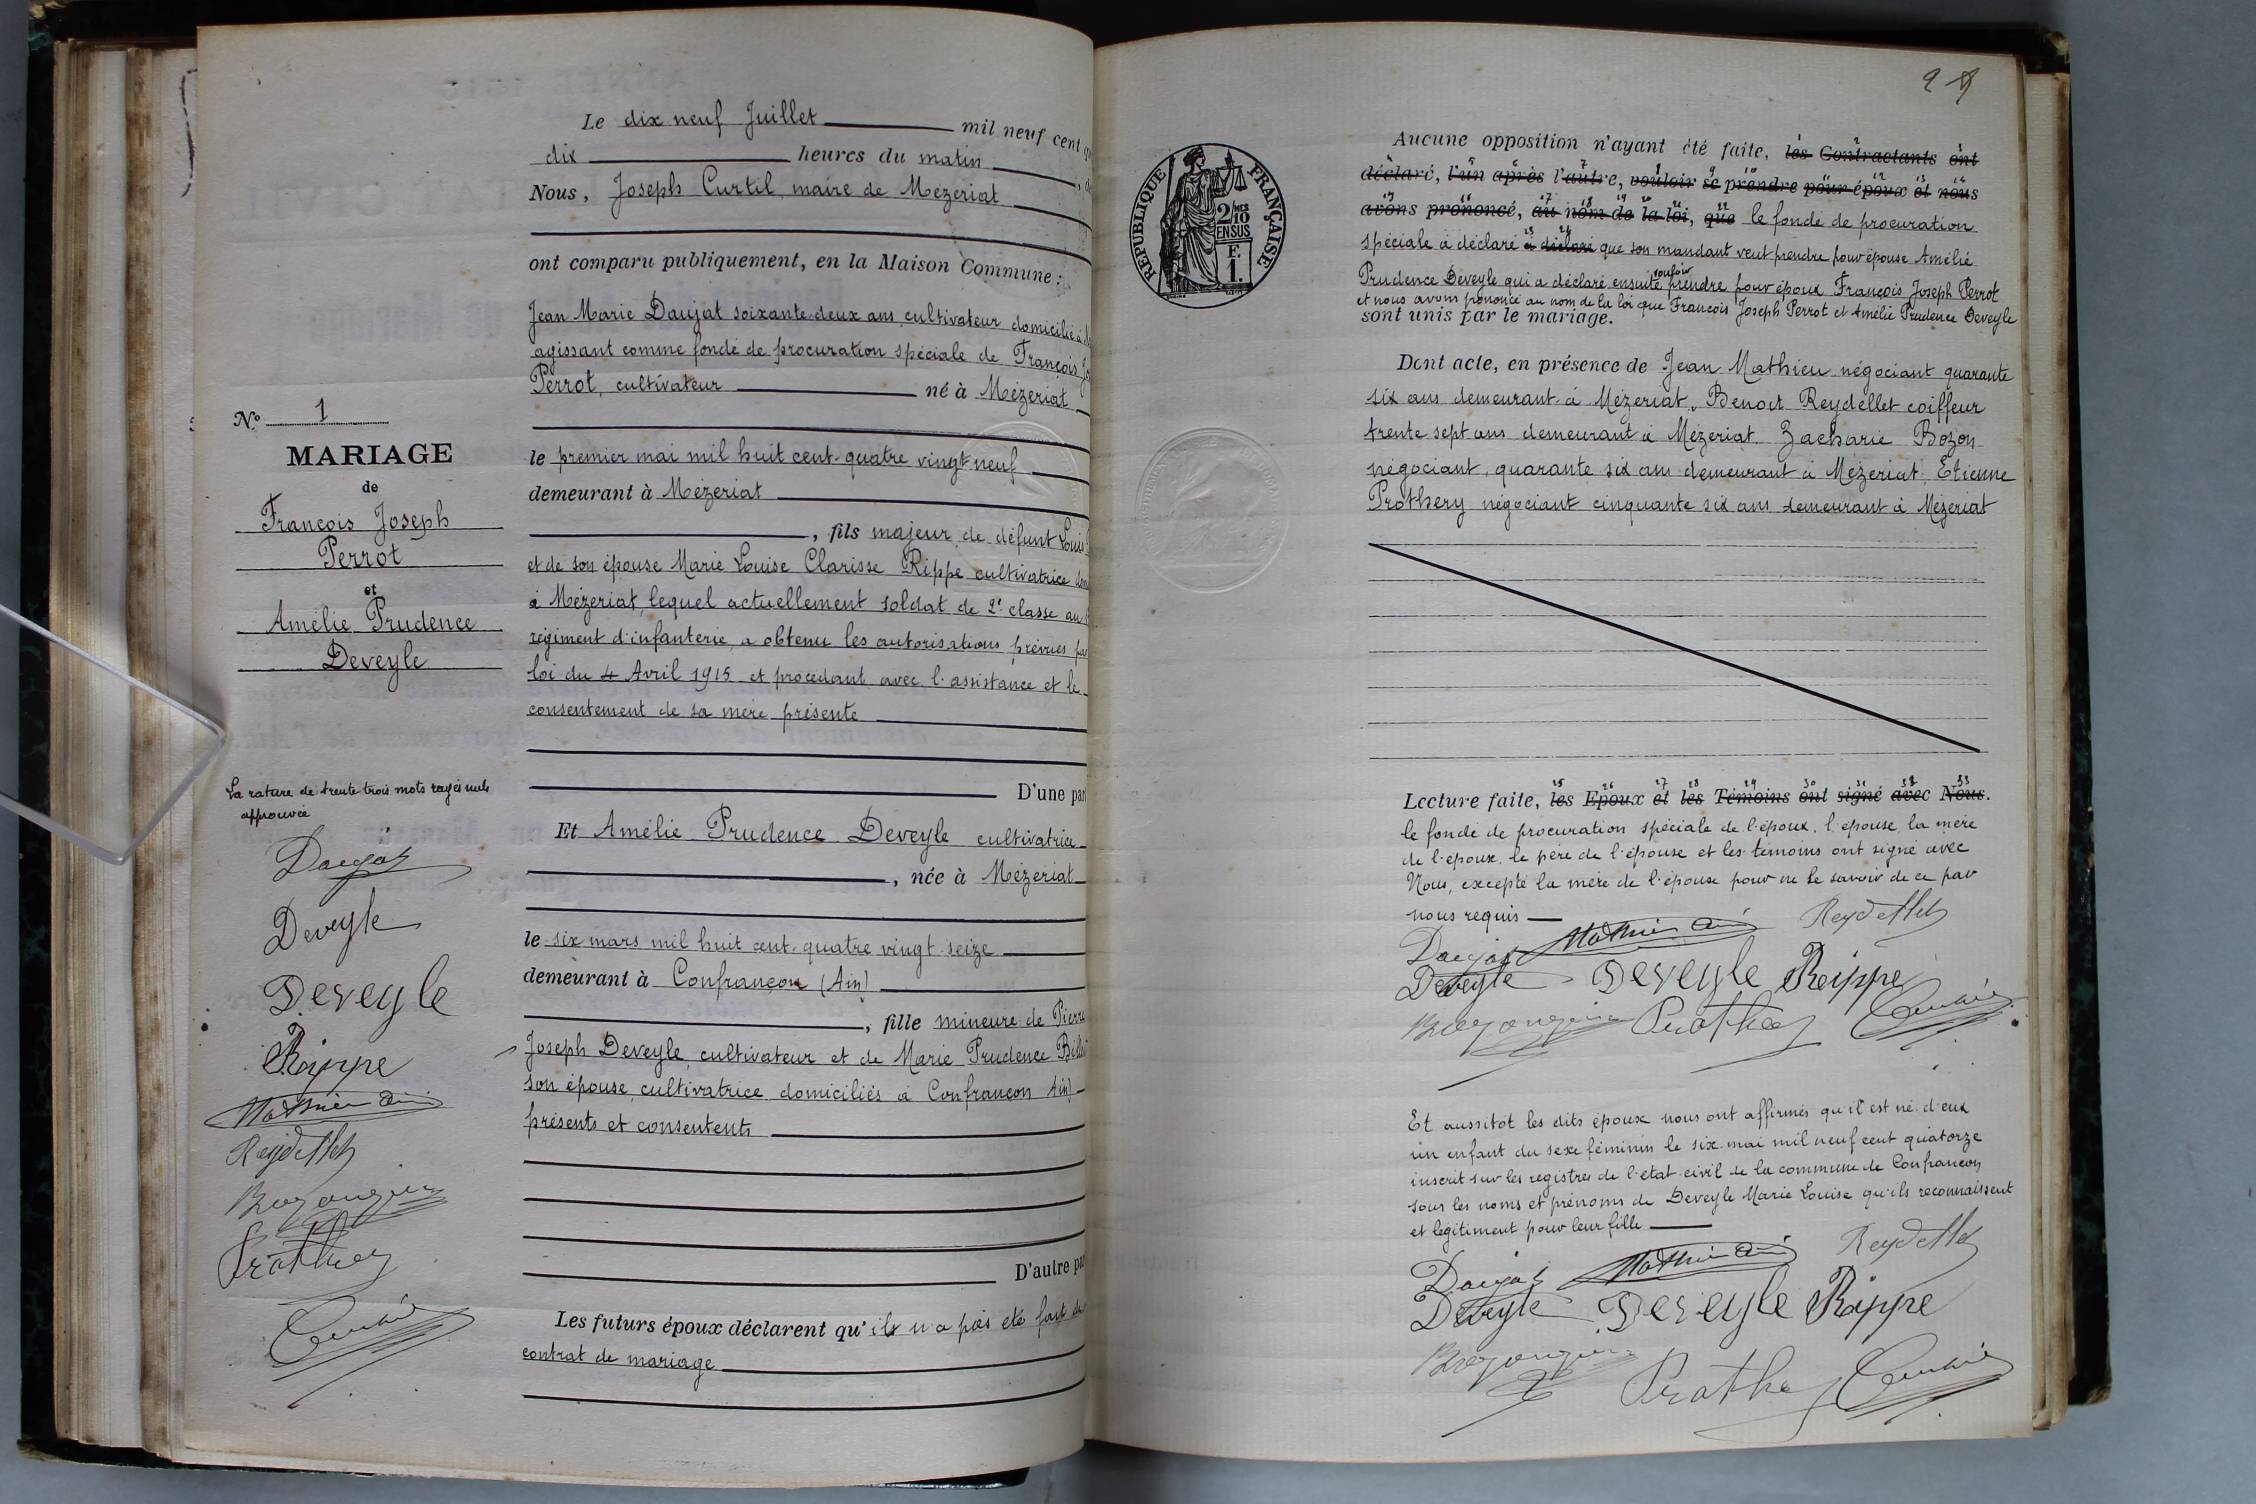 Le dix neuf Juillet mil neuf cent
dix heures du matin
Nous, Joseph Curtil, maire de Mézeriat
ont comparu publiquement, en la Maison Commune :
Jean Marie Daujat soixante-deux ans, cultivateur domicilié à
agissant comme fondé de procuration spéciale de François
Perrot, cultivateur né à Mézeriat
N.º 1
MARIAGE
de
François Joseph
Perrot
et
Amélie Prudence
Deveyle
le premier mai mil huit cent-quatre vingt neuf
demeurant à Mézeriat
, fils majeur de défunt Louis
et de son épouse Marie Louise Clarisse Rippe cultivatrice
à Mézeriat, lequel actuellement soldat de 2e classe au
régiment d'infanterie, a obtenu les autorisations prévues par
loi du 4 Avril 1915 et procédant avec l'assistance et le
consentement de sa mère présente
D'une part
La rature de trente trois mots rayés nuls
approuvée
Daujat
Deveyle
Deveyle
Rippe
Mathieu
Reydellet
Prothery
Et Amélie Prudence Deveyle cultivatrice
, née à Mézeriat
le six mars mil huit cent-quatre vingt seize
demeurant à Confrançon (Ain)
, fille mineure de Pierre
Joseph Deveyle, cultivateur et de Marie Prudence
son épouse, cultivatrice domiciliés à Confrançon Ain)
présents et consentents
D'autre
Les futurs époux déclarent qu'il n'a pas été fait de
contrat de mariage
RÉPUBLIQUE FRANÇAISE
2/MES
10
EN SUS
F.
1.
Aucune opposition n'ayant été faite, les Contractants ont
déclaré, l'un après l'autre, vouloir se prendre pour époux et nous
avons prononcé, au nom de la loi, que le fondé de procuration
spéciale à déclaré à déclaré que son mandant veut prendre pour épouse Amélie
Prudence Deveyle qui a déclaré ensuite vouloir prendre pour époux François Joseph Perrot
et nous avons prononcé au nom de la loi que François Joseph Perrot et Amélie Prudence Deveyle
sont unis par le mariage.
Dont acte, en présence de Jean Mathieu négociant quarante
six ans demeurant à Mézeriat, Benoit Reydellet coiffeur
trente sept ans demeurant à Mézeriat Zacharie Bozon
négociant, quarante six ans demeurant à Mézeriat, Etienne
Prothery négociant cinquante six ans demeurant à Mézeriat
Lecture faite, les Epoux et les Témoins ont signé avec Nous.
le fondé de procuration spéciale de l'époux, l'épouse, la mère
de l'époux, le père de l'épouse et les témoins ont signé avec
Nous, excepté la mère de l'épouse pour ne le savoir de ce par
nous requis
Daujat Mathieu Reydellet
Deveyle Deveyle Rippe
Prothery
Et aussitôt les dits époux nous ont affirmés qu'il est né d'eux
un enfant du sexe féminin le six mai mil neuf cent quatorze
inscrit sur les registres de l'état civil de la commune de Confrançon
sous les noms et prénoms de Deveyle Marie Louise qu'ils reconnaissent
et légitiment pour leur fille
Daujat Mathieu Reydellet
Deveyle Deveyle Rippe
Prothery